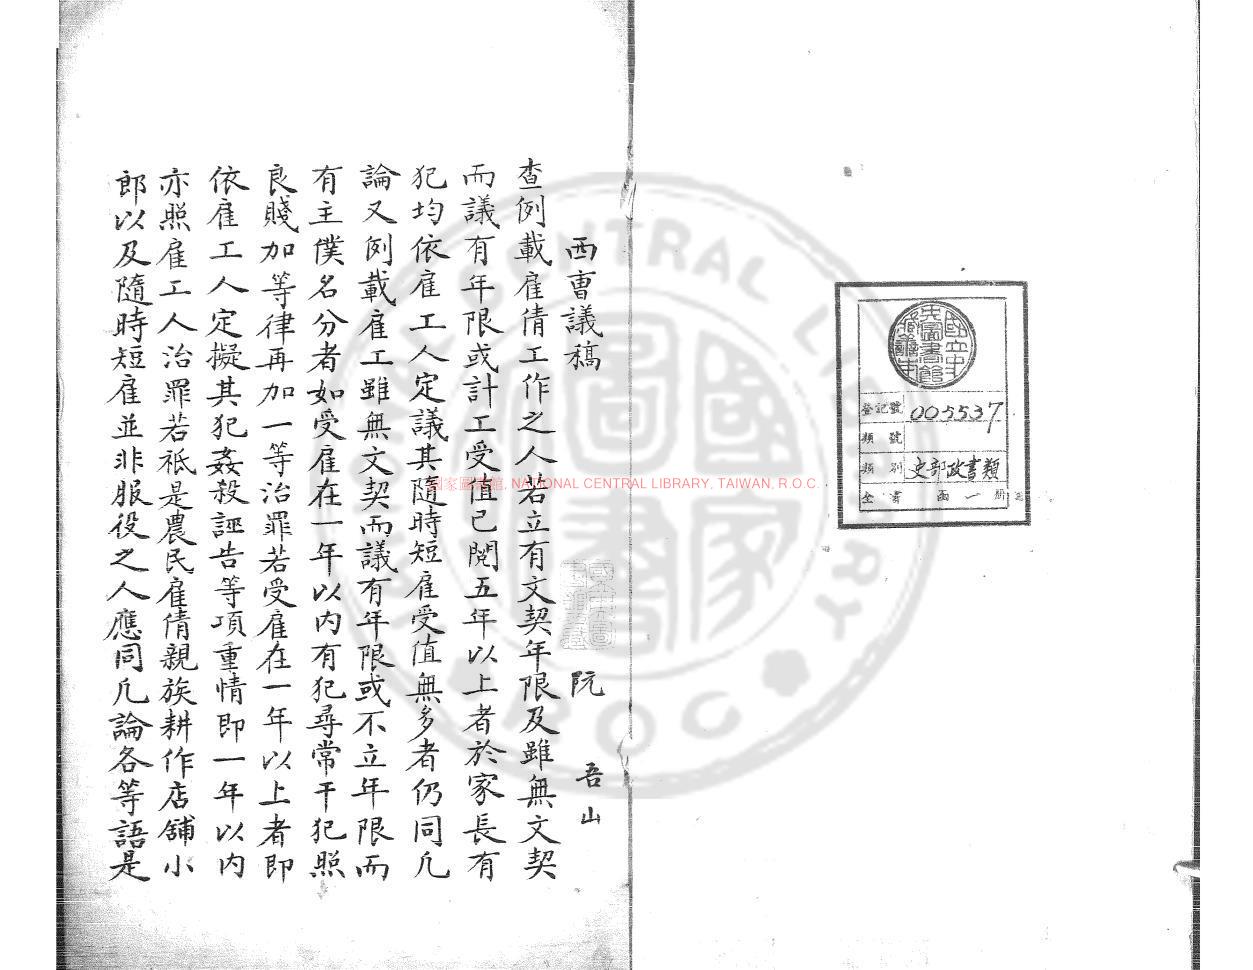 西曹議稿 阮 吾山
查例載雇倩工作之人若立有文契年限及雖無文契
而議有年限或計工受值已閱五年以上者於家長有
犯均依雇工人定議其隨時短雇受值無多者仍同凡
論又例載雇工雖無文契而議有年限或不立年限而
有主僕名分者如受雇在一年以内有犯尋常干犯照
良賤加等律再加一等治罪若受雇在一年以上者即
依雇工人定擬其犯姦殺誣告等項重情即一年以内
亦照雇工人治罪若祗是農民雇倩親族耕作店舖小
郎以及隨時短雇並非服役之人應同凡論各等語是
國立中央圖書館
登記號 005537
類號
類別 史部政書類
全書 函一冊
國家圖書館, NATIONAL CENTRAL LIBRARY, TAIWAN, R.O.C.
NATIONAL CENTRAL LIBRARY
R.O.C.
國家圖書